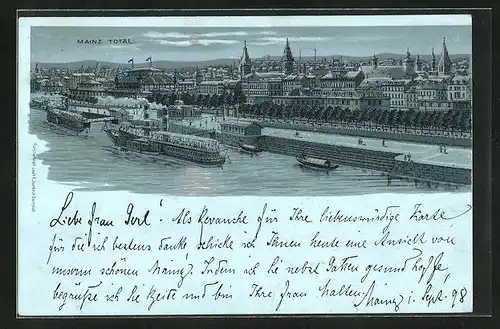 MAINZ TOTAL.
Liebe Frau Gerl! Als Revanche für Ihre liebenswürdige Karte
für die ich bestens danke, schicke ich Ihnen heute eine Ansicht von
unserm schönen Mainz. Indem ich Sie nebst Gatten gesund hoffe,
begrüße ich Sie Beide und bin Ihre Frau Walter. Mainz i. Sept. 98